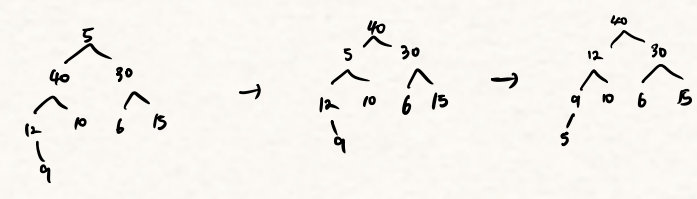 5
40 30
12 10 6 15
9
→
40
5 30
12 10 6 15
9
→
40
12 30
9 10 6 15
5